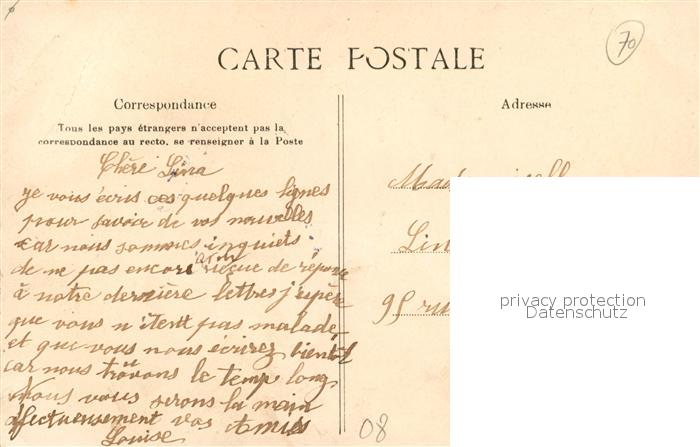 70
CARTE POSTALE
Correspondance
Tous les pays étrangers n'acceptent pas la
correspondance au recto, se renseigner à la Poste
Adresse
Chère Lina
je vous écris ces quelques lignes
pour savoir de vos nouvelles
car nous sommes inquiets
de ne pas encore avoir reçue de réponse
à notre dernzière lettres j'espère
que vous n'êtent pas malade
et que vous nous écrirez bientôt
car nous trouvons le temp long
Nous vous serons la main
afectueusement vos Amies
Louise
Lin
95 ru
privacy protection
Datenschutz
08